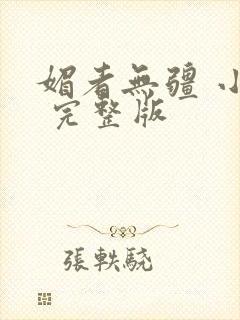 媚者無疆 小
完整版
張軼驍